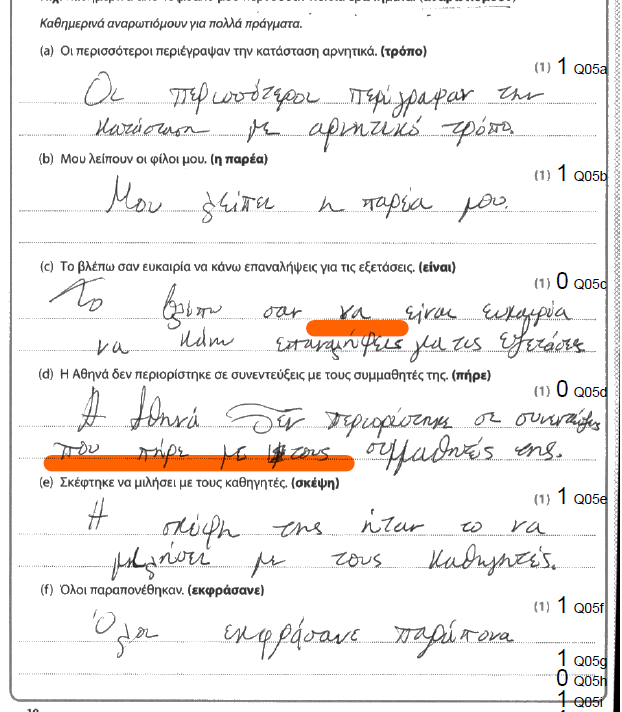 Καθημερινά αναρωτιόμουν για πολλά πράγματα.
(a) Οι περισσότεροι περιέγραψαν την κατάσταση αρνητικά. (τρόπο)
(1) 1 Q05a
Οι περισσότεροι περίγραψαν την
κατάσταση με αρνητικό τρόπο.
(b) Μου λείπουν οι φίλοι μου. (η παρέα)
(1) 1 Q05b
Μου λείπει η παρέα μου.
(c) Το βλέπω σαν ευκαιρία να κάνω επαναλήψεις για τις εξετάσεις. (είναι)
(1) 0 Q05c
Το βλέπω σαν να είναι ευκαιρία
να κάνω επαναλήψεις για τις εξετάσεις
(d) Η Αθηνά δεν περιορίστηκε σε συνεντεύξεις με τους συμμαθητές της. (πήρε)
(1) 0 Q05d
Η Αθηνά δεν περιορίστηκε σε συνεντεύξεις
που πήρε με τους συμμαθητές της.
(e) Σκέφτηκε να μιλήσει με τους καθηγητές. (σκέψη)
(1) 1 Q05e
Η σκέψη της ήταν το να
μιλήσει με τους καθηγητές.
(f) Όλοι παραπονέθηκαν. (εκφράσανε)
(1) 1 Q05f
Όλοι εκφράσανε παράπονα
1 Q05g
0 Q05h
1 Q05i